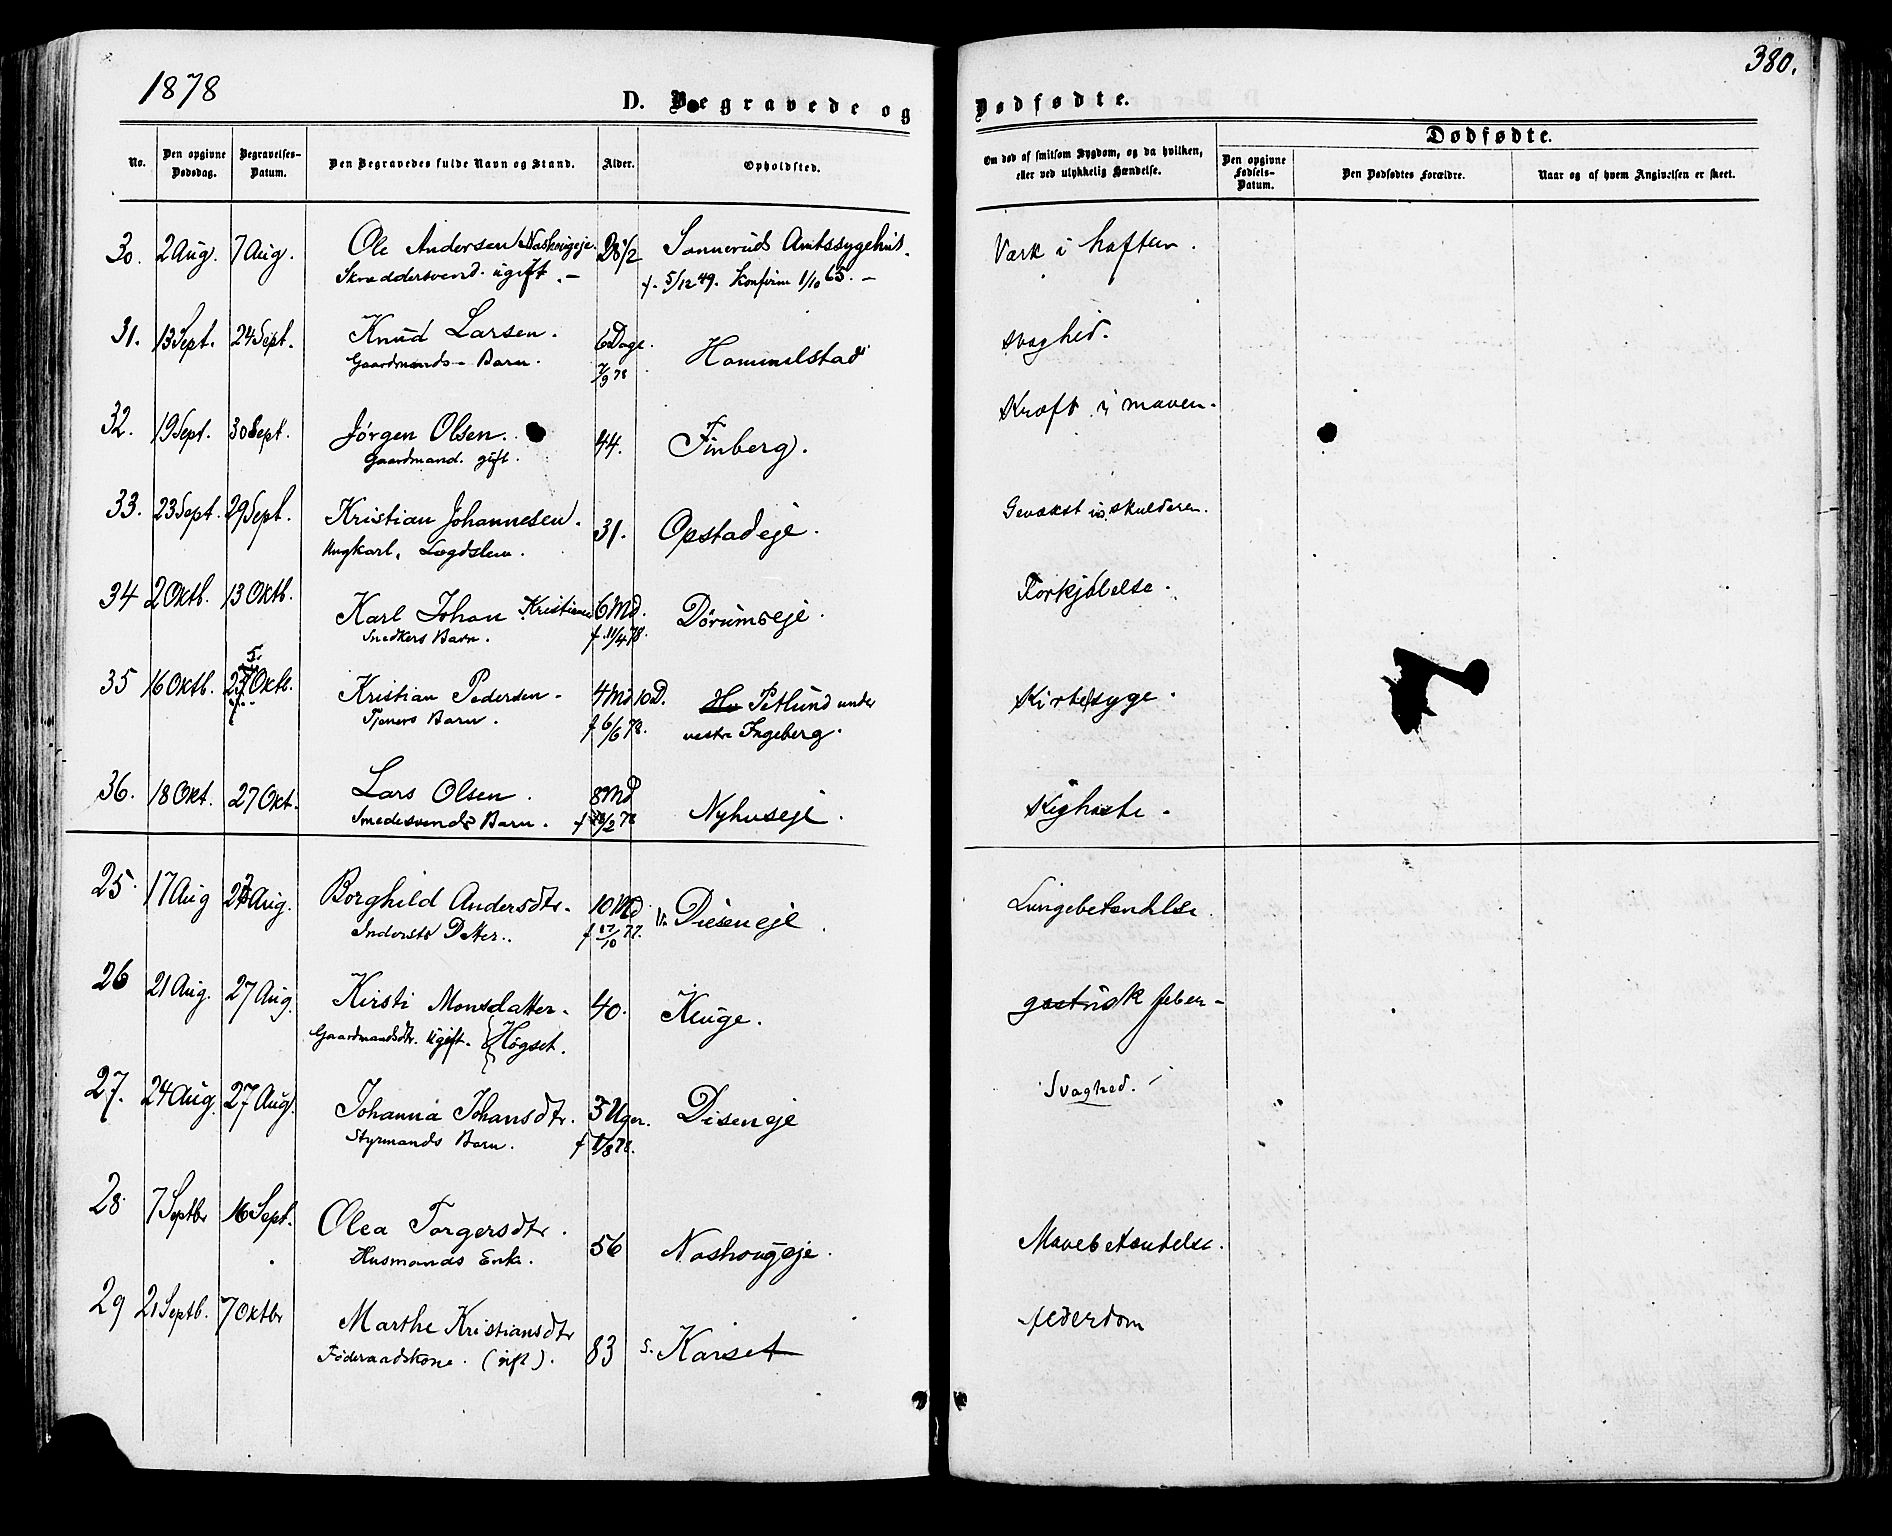 1878
380.
D. Begravede og Dødfødte.
Dødfødte.
No.
Den opgivne Dødsdag.
Begravelses-Datum.
Den Begravedes fulde Navn og Stand.
Alder.
Opholdsted.
Om død af smitsom Sygdom, og da hvilken, eller ved ulykkelig Hændelse.
Den opgivne Fødsels-Datum.
Den Dødfødtes Forældre.
Naar og af hvem Angivelsen er skeet.
30. 2 Aug. 7 Aug. Ole Andersen Naskougeje. 28 1/2 Sannerud Amtssygehus. Værk i haften.
Skræddersvend. ugift. — f. 5/12 49. Konfirm 1/10 65. —
31. 13 Sept. 24 Sept. Knud Larsen. 6 Dage. Hommelstad svaghed.
Gaardmands- Barn. 7/9 78
32. 19 Sept. 30 Sept. Jörgen Olsen. 44. Finberg. Kræft i maven.
Gaardmand. gift.
33. 23 Sept. 29 Sept. Kristian Johannesen. 31. Opstadeje. Gevækst i skulderen.
Ungkarl, Lægdslem.
34 2 Oktb. 13 Oktb. Karl Johan Kristians 6 Md. Dörumseje. Forkjölelse.
Snedkers Barn. f. 11/4 78.
35 16 Oktb. 27 Oktb. Kristian Pedersen 4 Md 10 D. Petlund under Kirtelsyge.
5.
Tjeners Barn. f 6/6 78. vestre Ingeberg.
36. 18 Okt. 27 Okt. Lars Olsen. 8 Md Nyhuseje. Kighoste.
Smedesvends Barn. f /2 78
25. 17 Aug Aug. Borghild Andersdtr. 10 Md V. Diseneje. Lungebetændelse.
Indersts Datter. f 17/10 77.
26 21 Aug. 27 Aug. Kirsti Monsdatter. 40. Kuuge. gastrisk feber
Gaardmandsdtr. Ugift. Högset.
27. 24 Aug. 27 Aug. Johanna Johansdtr. 3 Uger. Diseneje Svaghed.
Styrmands Barn. f 1/8 78.
28. 7 Septbr 16 Sept. Olea Torgersdtr. 56 Naskougeje. Mavebetændelse.
Husmands Enke.
29 21 Septb. 7 Oktbr Marthe Kristiansdtr 83 S. Karset Alderdom
Föderaadskone. (gift).